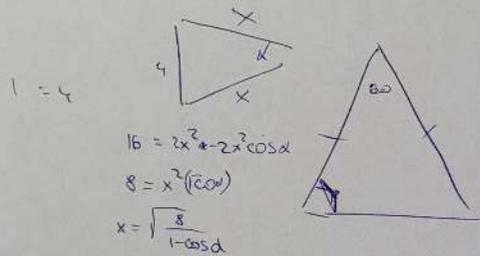 1 = 4
x
4
α
x
60
16 = 2x² - 2x² cosα
8 = x² (1-cosα)
x = √(8/(1-cosα))